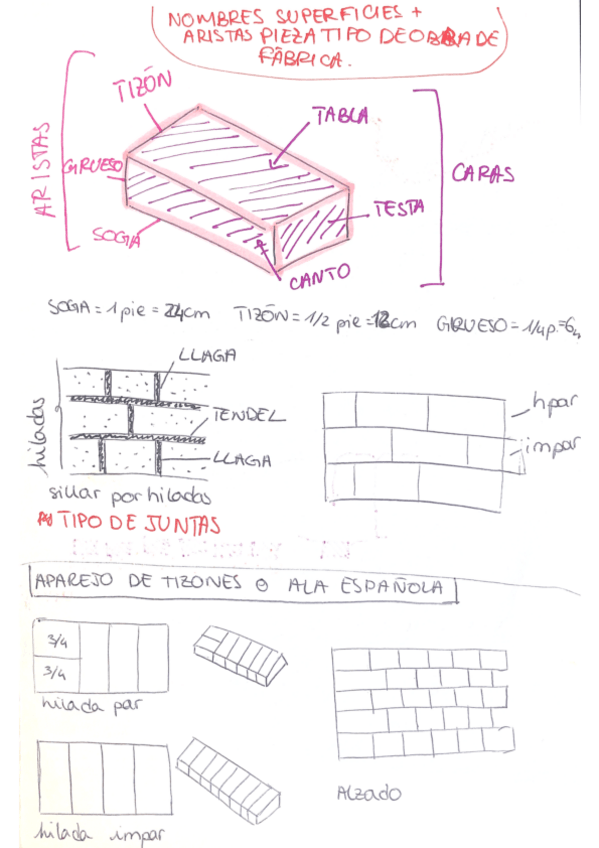 NOMBRES SUPERFICIES +
ARISTAS PIEZA TIPO DE OBRA DE
FÁBRICA.
TIZÓN
TABLA
ARISTAS
GRUESO
CARAS
TESTA
SOGA
CANTO
SOGA = 1 pie = 24cm TIZÓN = 1/2 pie = 12cm GRUESO = 1/4 p. = 6
LLAGA
hiladas
TENDEL
LLAGA
h par
impar
sillar por hiladas
TIPO DE JUNTAS
APAREJO DE TIZONES O A LA ESPAÑOLA
3/4
3/4
hilada par
Alzado
hilada impar